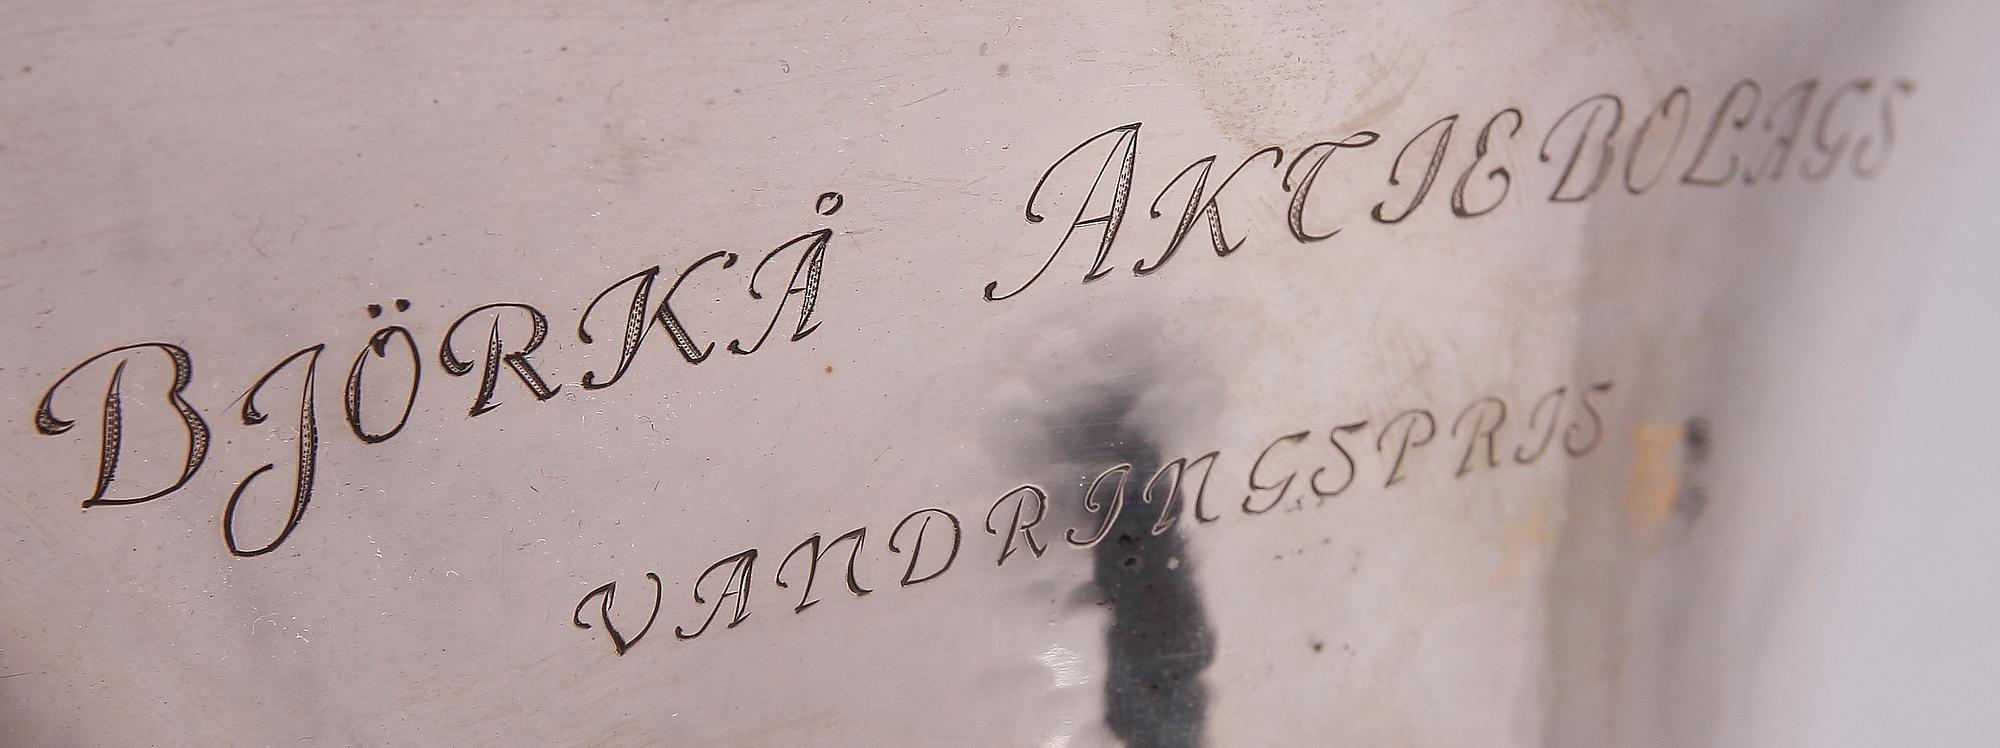 BJÖRKÅ AKTIEBOLAGS
VANDRINGSPRIS